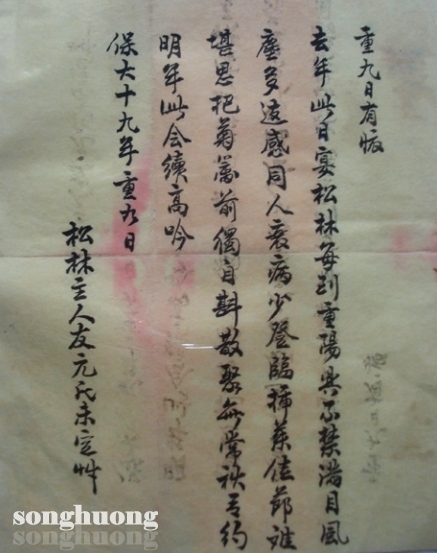 重九日有悵
去年此日宴松林每到重陽興不禁滿目風
塵多遠感同人衰病少登臨插茱佳節誰
堪思把菊籬前獨自斟散聚無常秋約
明年此会續高吟
保大十九年重九日
松林主人友元氏未定艸
songhuong